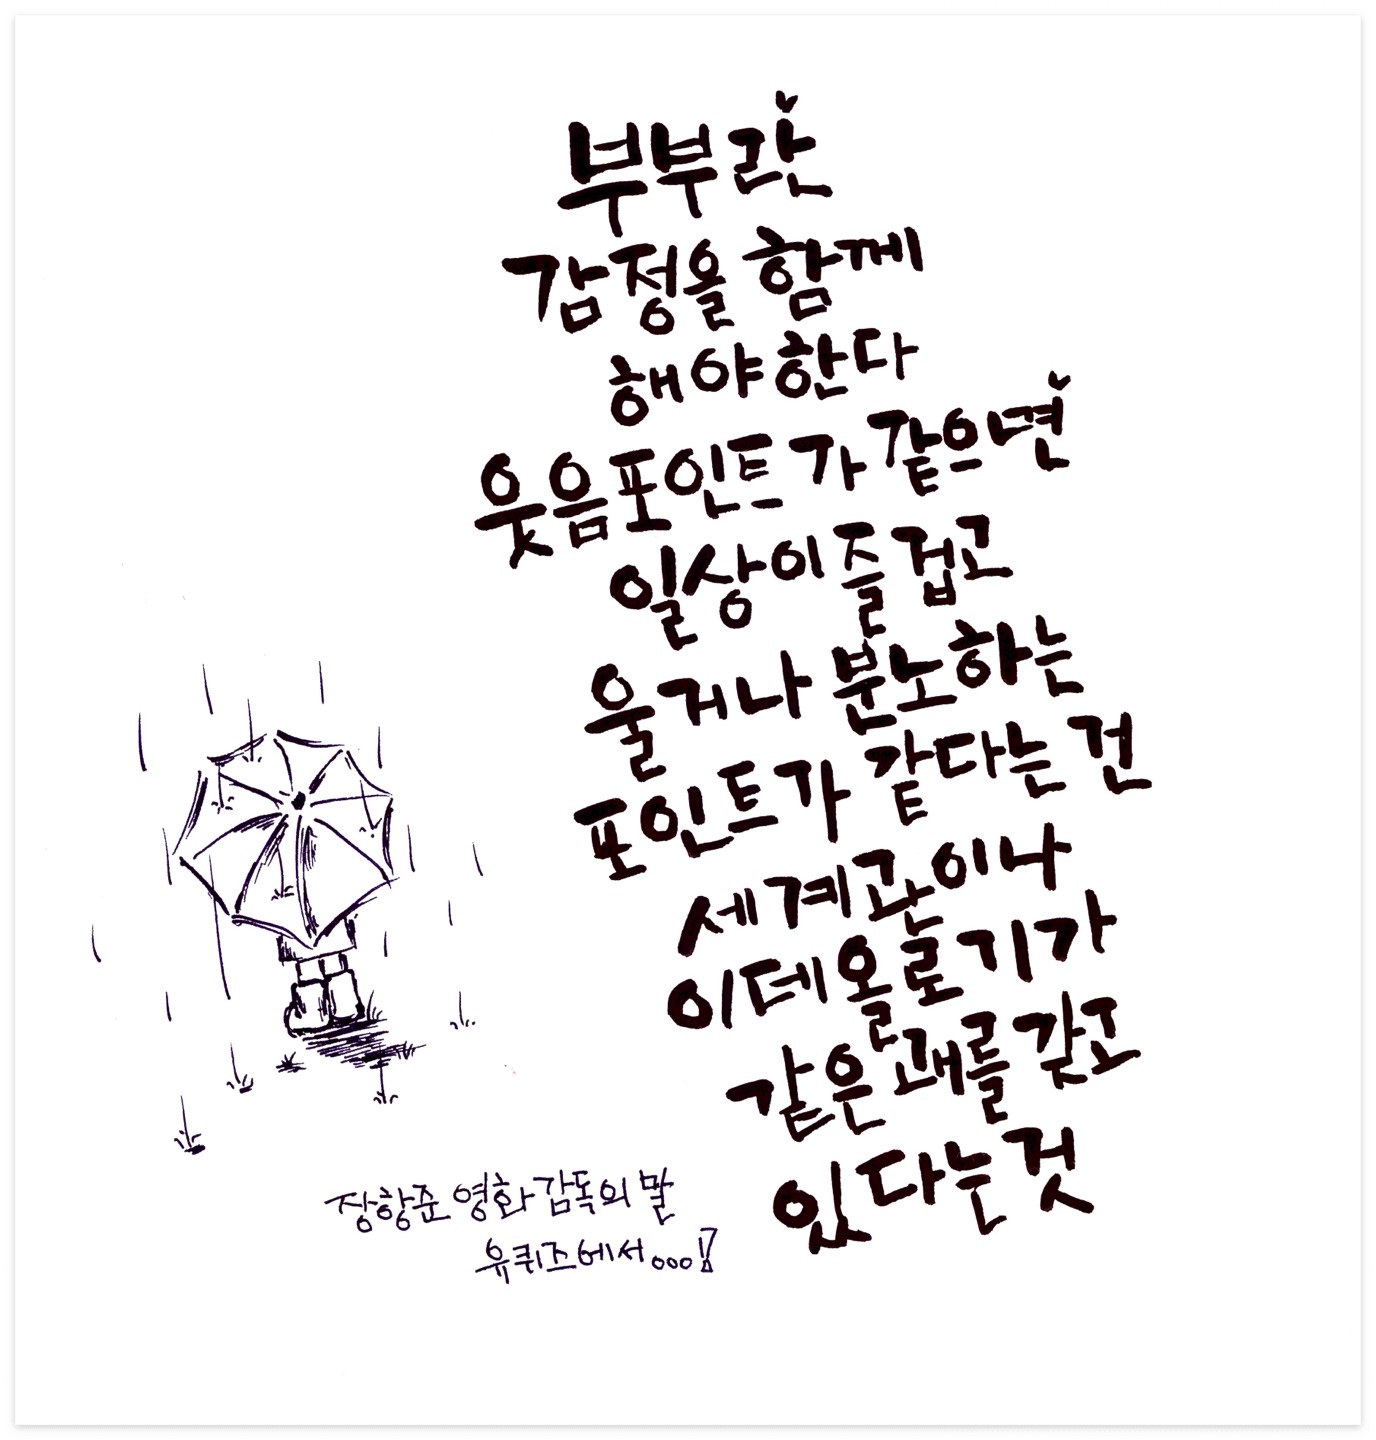 부부란
감정을 함께
해야 한다
웃음포인트가 같으면
일상이 즐겁고
울거나 분노하는
포인트가 같다는 건
세계관이나
이데올로기가
같은 괘를 갖고
있다는 것
장항준 영화감독의 말
유퀴즈에서...!